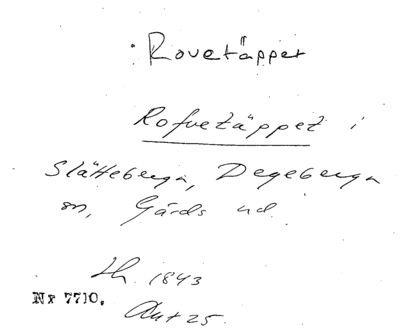 Rovetäppet
Rofvetäppet i
Slätteberga, Degeberga
sn, Gärds hd.
Lh. 1843
Nr 7710.
Akt 25.